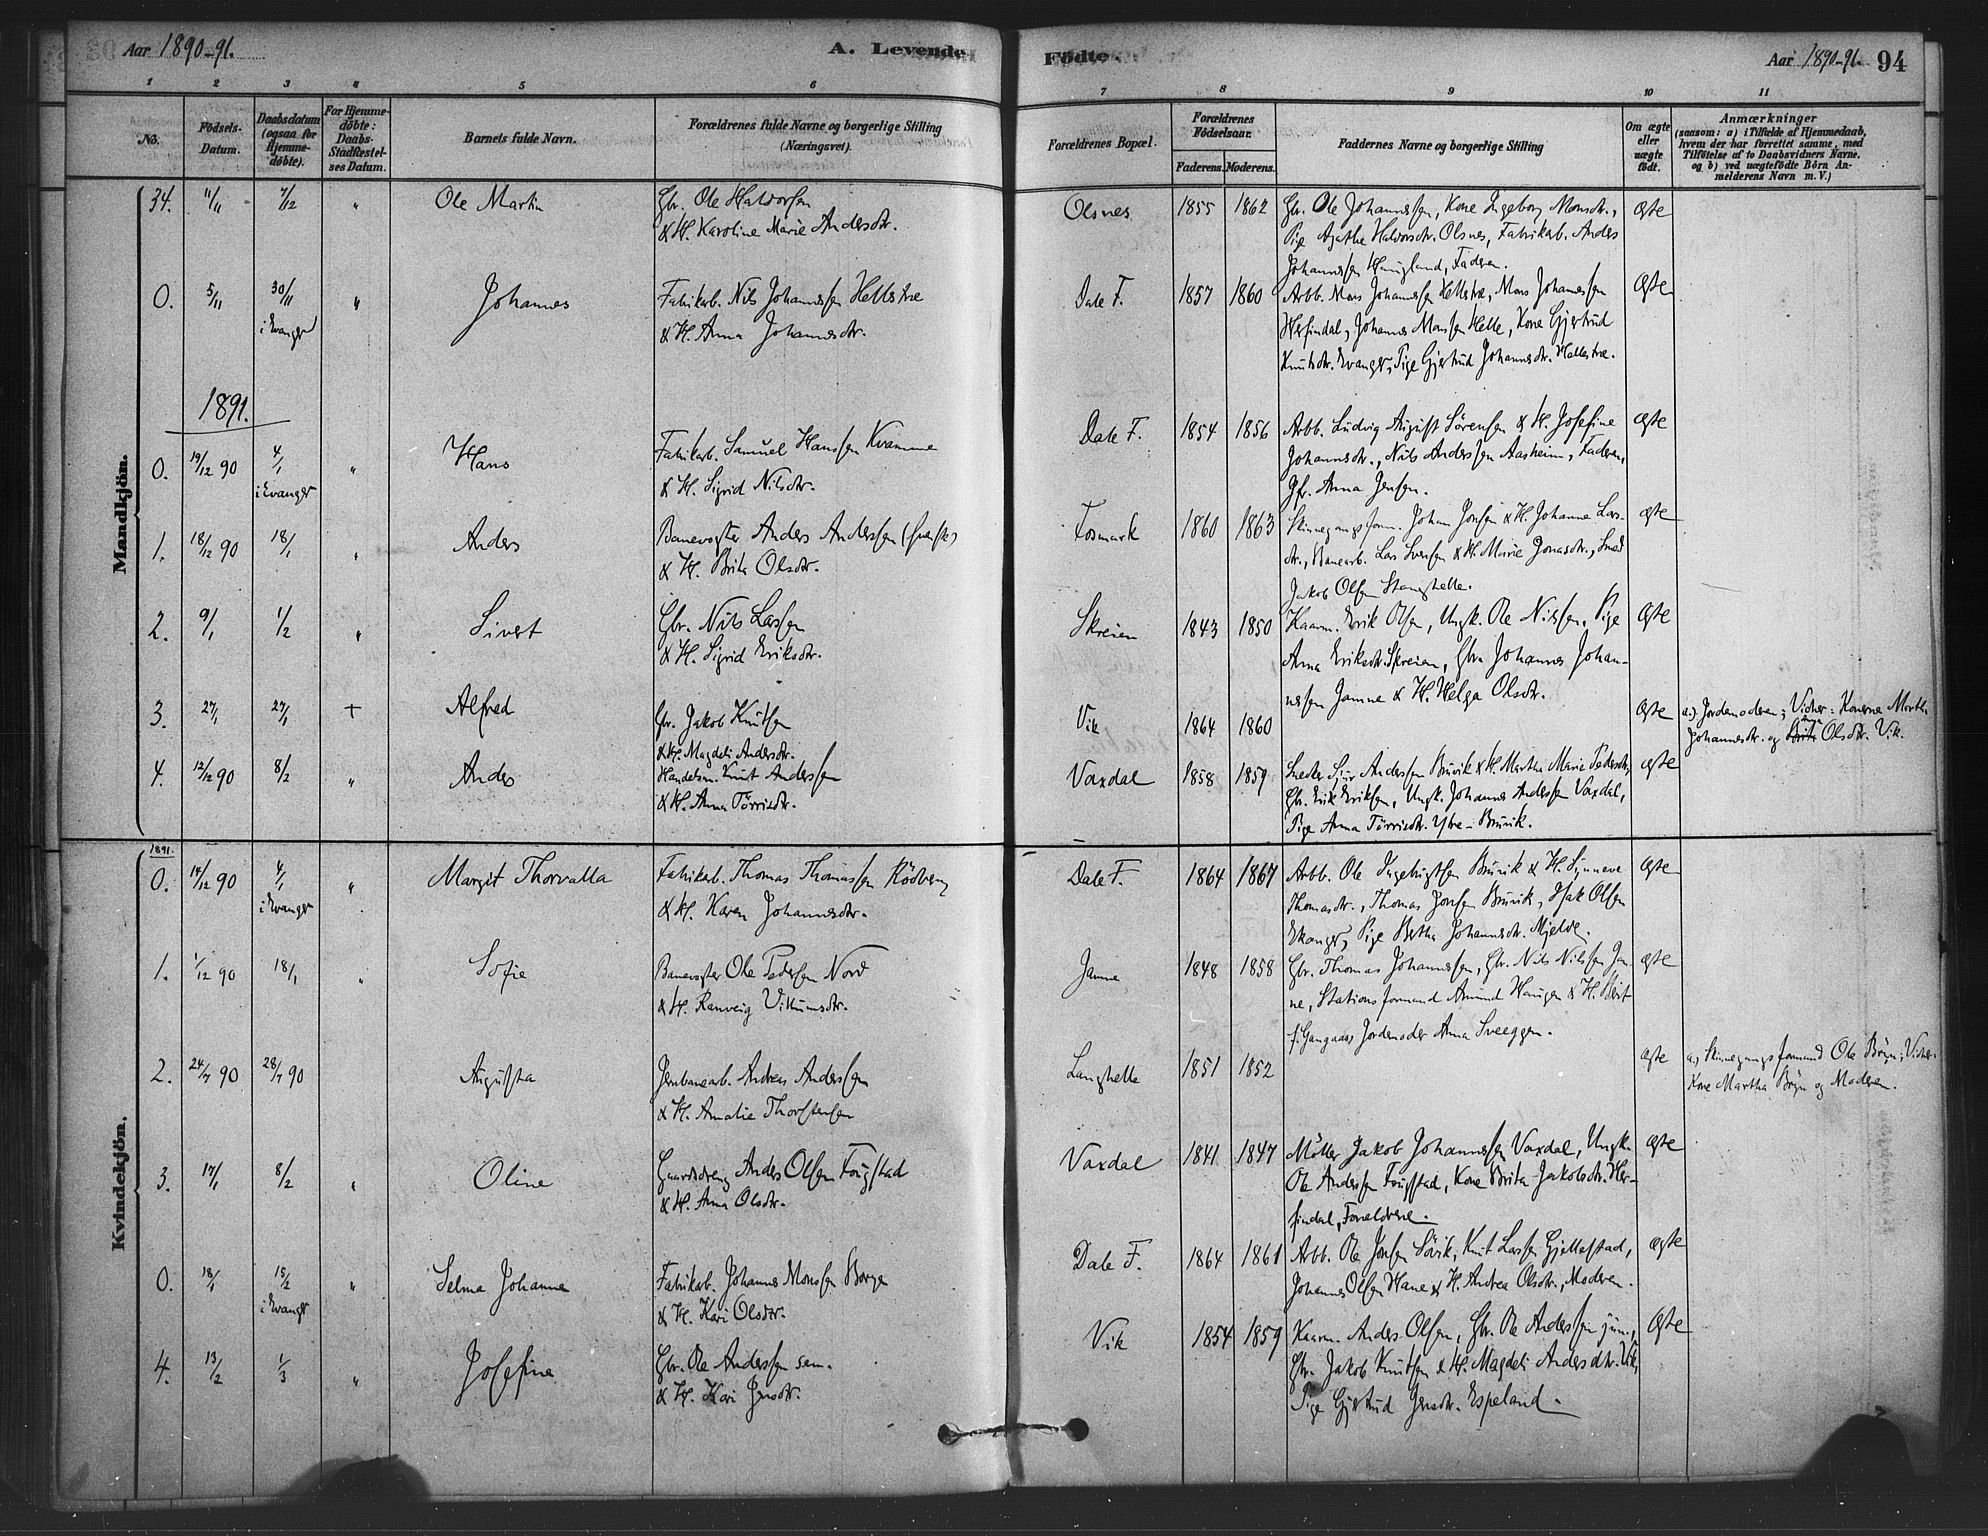 Aar 1890-91.
A. Levende
Födte.
Aar 1890-91. 94
1 2 3 4 5 6 7 8 9 10 11
No.
Födsels-Datum.
Daabsdatum (ogsaa for Hjemmedöbte).
For Hjemmedöbte: Daabs-Stadfæstelses Datum.
Barnets fulde Navn.
Forældrenes fulde Navne og borgerlige Stilling (Næringsvei).
Forældrenes Bopæl.
Forældrenes Födselsaar.
Faderens. Moderens.
Faddernes Navne og borgerlige Stilling
Om ægte eller uægte födt.
Anmærkninger
(saasom: a) i Tilfælde af Hjemmedaab, hvem der har forrettet samme, med Tilföielse af to Daabsvidners Navne, og b) ved uægtefödte Börn Anmelderens Navn m. V.)
Mandkjön.
34. 11/11 7/12 " Ole Martin
Gbr. Ole Haldorsen
& H. Karoline Marie Andersdtr.
Olsnes 1855 1862
Gbr. Ole Johannessen, Kone Ingeborg Monsdtr.,
Pige Agathe Haldorsdtr. Olsnes, Fabrikarb. Anders
Johannessen Haugland, Faderen.
ægte
0. 5/11 30/11 i Evanger " Johannes
Fabrikarb. Nils Johannessen Hellstræ
& H. Anna Johannesdtr.
Dale F. 1857 1860
Arbb. Mons Johannessen Hellstræ, Mons Johannessen
Herfindal, Johannes Monsen Helle, Kone Gjertrud
Knutsdtr. Evanger, Pige Gjertrud Johannesdtr. Hellestræ.
ægte
1891.
0. 19/12 90 4/1 i Evanger " Hans
Fabrikarb. Samuel Hanssen Kvamme
& H. Sigrid Nilsdtr.
Dale F. 1854 1856
Arbb. Ludvig August Sörensen & H. Josefine
Johannesdtr., Nils Anderssen Aasheim, Faderen,
Gfr. Anna Jensen.
ægte
1. 18/12 90 18/1 " Anders
Banevogter Anders Anderssen (svensk)
& H. Brita Olsdtr.
Fosmark 1860 1863
Skinnegangsform. Johan Jonsen & H. Johanne Lars-
dtr., Banearb. Lars Svensen & H. Marie Jonasdtr., Smed
Jakob Olsen Stanghelle.
ægte
2. 9/1 1/2 " Sivert
Gbr. Nils Larssen
& H. Sigrid Eriksdtr.
Skreien 1843 1850
Kaarm. Erik Olsen, Ungk. Ole Nilssen, Pige
Anna Eriksdtr. Skreien, Gbr. Johannes Johan-
nessen Jamne & H. Helga Olsdtr.
ægte
3. 27/1 27/1 + Alfred
Gbr. Jakob Knutsen
& H. Magdeli Andersdtr.
Vik 1864 1860
ægte
a.) Jordemoderen; Vidner: Konerne Marth.
Johannesdtr. og Olsdtr. Vik.
4. 12/12 90 8/2 " Anders
Handelsm. Knut Anderssen
& H. Anna Törrisdtr.
Vaxdal 1858 1859
Snedker Sjur Anderssen Bruvik & H. Martha Marie Pedersdtr.,
Gbr. Erik Eriksen, Ungk. Johannes Anderssen Vaxdal,
Pige Anna Törrisdtr. Ytre-Bruvik.
ægte
Kvindekjön.
1891.
0. 14/12 90 4/1 i Evanger " Margit Thorvalla
Fabrikarb. Thomas Thomassen Rödberg
& H. Karen Johannesdtr.
Dale F. 1864 1867
Arbb. Ole Ingebrigtsen Bruvik & H. Synneve
Thomasdtr., Thomas Jonsen Bruvik, Isak Olsen
Ekanger, Pige Bertha Johannesdtr. Mjelde.
ægte
1. 1/12 90 18/1 " Sofie
Banevogter Ole Pedersen Nord
& H. Ranveig Vikumsdtr.
Jamne 1848 1858
Gbr. Thomas Johannessen, Gbr. Nils Nilssen Jam-
ne, Stationsformand Amund Haugen & H. Berit
f. Gangaas, Jordemoder Anna Sveeggen.
ægte
2. 24/7 90 28/7 90 Augusta
Jernbanearb. Andreas Anderssen
& H. Amalie Thorstensen
Langhelle 1851 1852
ægte
a.) Skinnegangsformand Ole Bögn; Vidner:
Kone Martha Bögn og Moderen.
3. 17/1 8/2 " Oline
Gaardsdreng Anders Olsen Fugstad
& H. Anna Olsdtr.
Vaxdal 1841 1847
Möller Jakob Johannessen Vaxdal, Ungk.
Ole Anderssen Fugstad, Kone Brita Jakobsdtr. Her-
findal, Forældrene.
ægte
0. 18/1 15/2 i Evanger " Selma Johanne
Fabrikarb. Johannes Monssen Borge
& H. Kari Olsdtr.
Dale F. 1864 1861
Arbb. Ole Jonsen Sövik, Knut Larssen Gjellestad,
Johannes Olsen Hane & H. Andrea Olsdtr., Moderen.
ægte
4. 13/2 1/3 " Josefine
Gbr. Ole Anderssen sen.
& H. Kari Jensdtr.
Vik 1854 1859
Kaarm. Anders Olsen, Gbr. Ole Anderssen jun.,
Gbr. Jakob Knutsen & H. Magdeli Andersdtr. Vik,
Pige Gjertrud Jensdtr. Espeland.
ægte